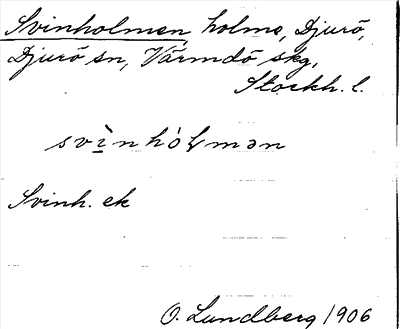 Svinholmen, holme, Djurö,
Djurö sn, Värmdö skg,
Stockh. l.
svìnhólmən
Svinh. ek
O. Lundberg 1906